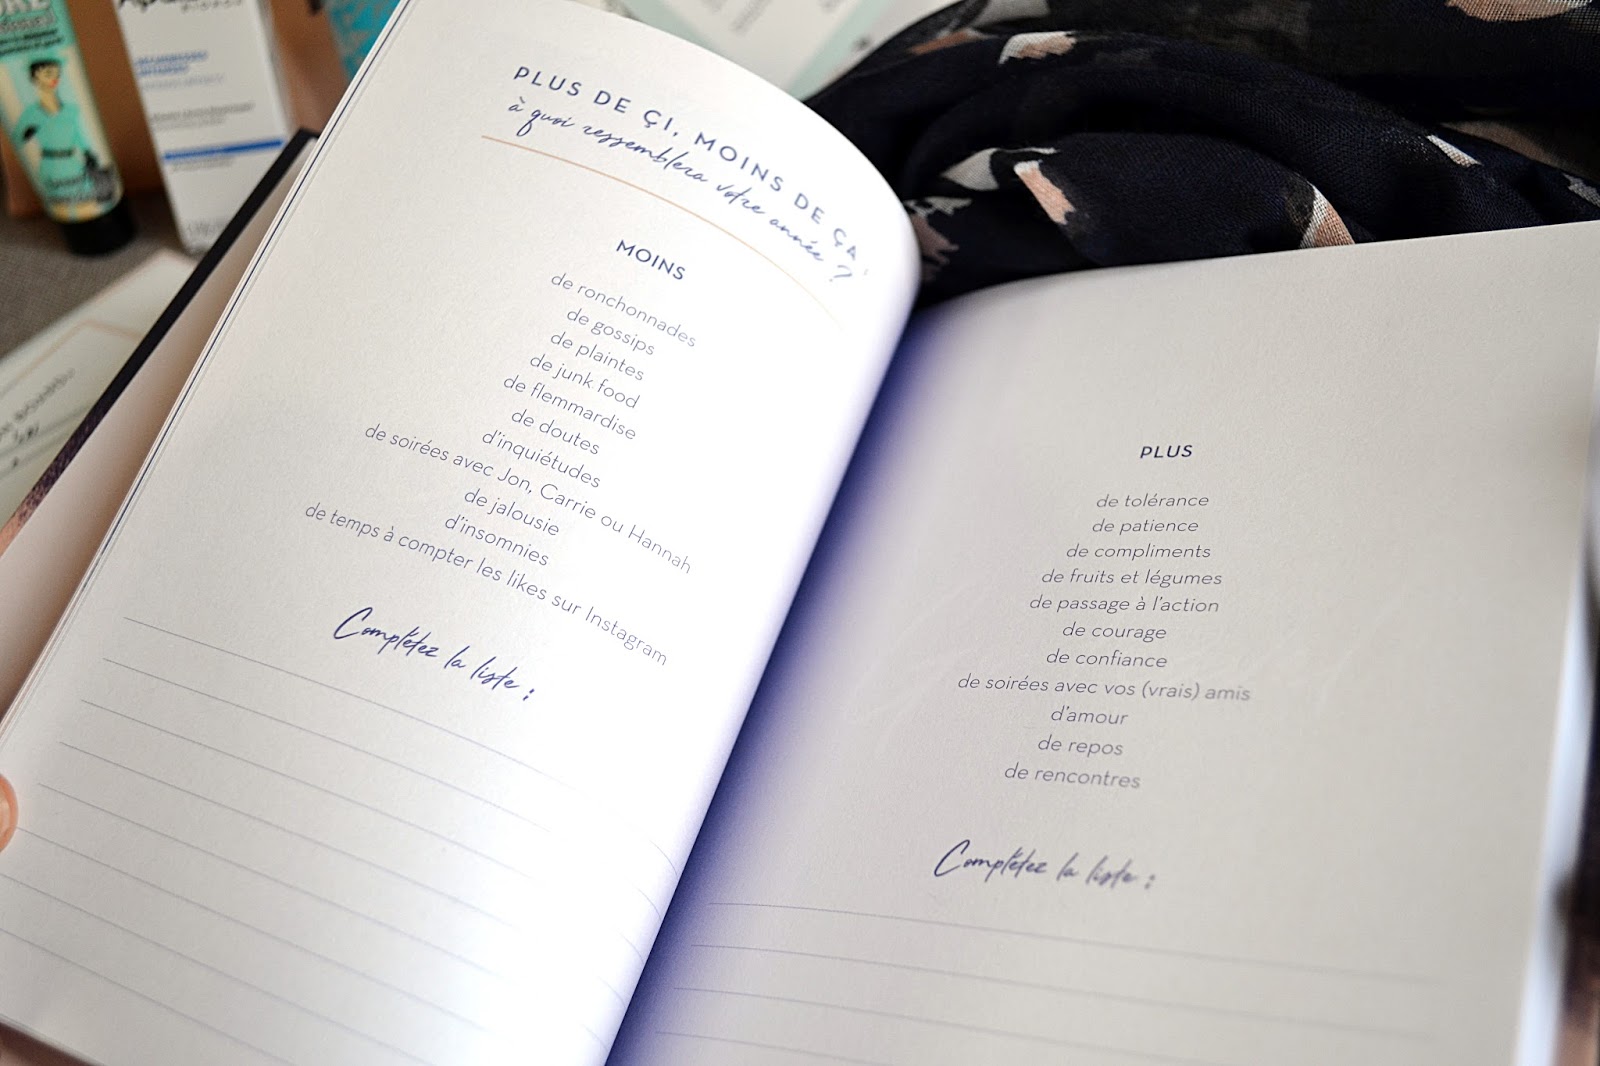 PLUS DE ÇI, MOINS DE ÇA,
à quoi ressemblera votre année ?
MOINS
de ronchonnades
de gossips
de plaintes
de junk food
de flemmardise
de doutes
d'inquiétudes
de soirées avec Jon, Carrie ou Hannah
de jalousie
d'insomnies
de temps à compter les likes sur Instagram
Complétez la liste :
PLUS
de tolérance
de patience
de compliments
de fruits et légumes
de passage à l'action
de courage
de confiance
de soirées avec vos (vrais) amis
d'amour
de repos
de rencontres
Complétez la liste :